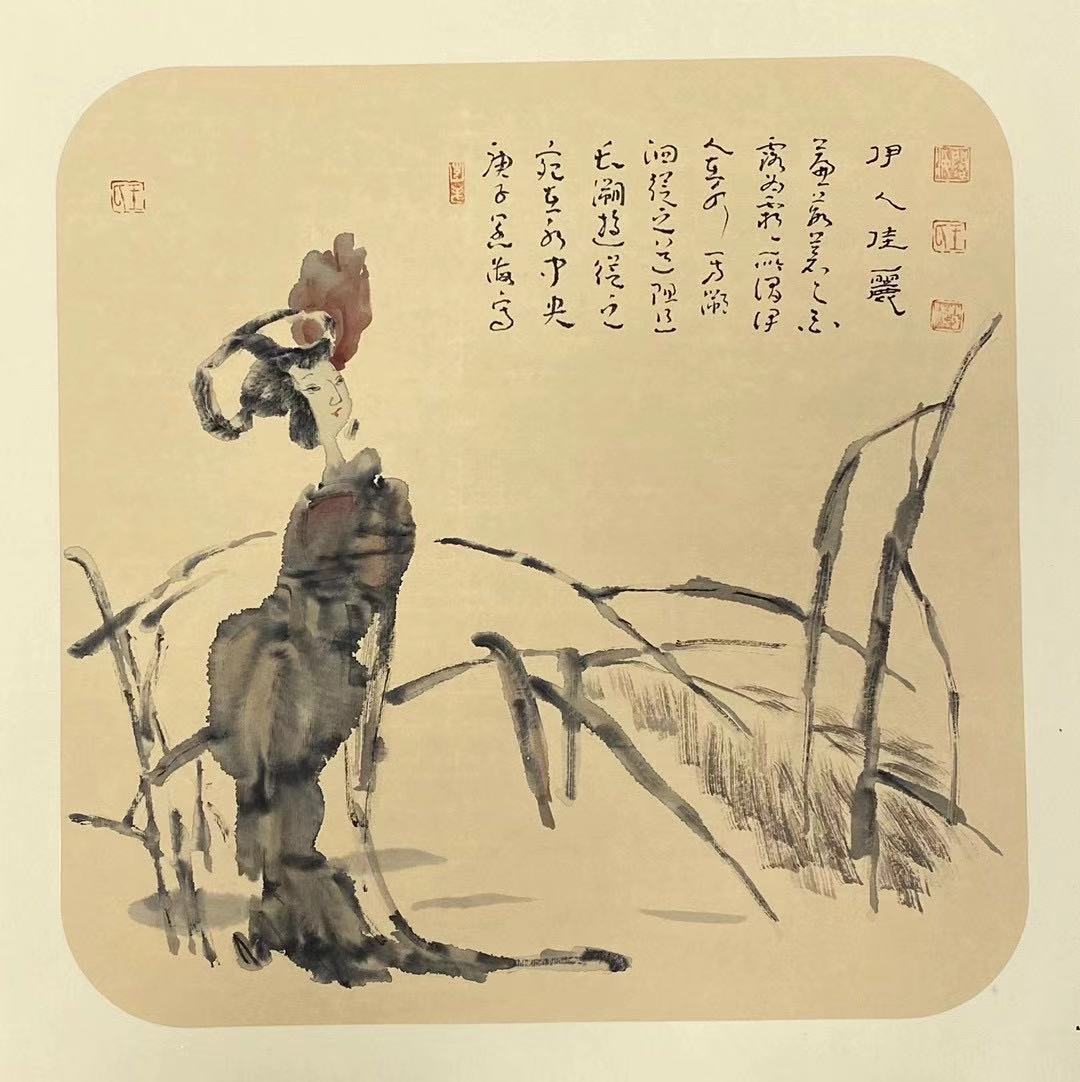 伊人佳麗
蒹葭蒼々白
露为霜所謂伊
人在水一方溯
洄從之道阻且
長溯游從之
宛在水中央
庚子墨海写
王氏
王氏